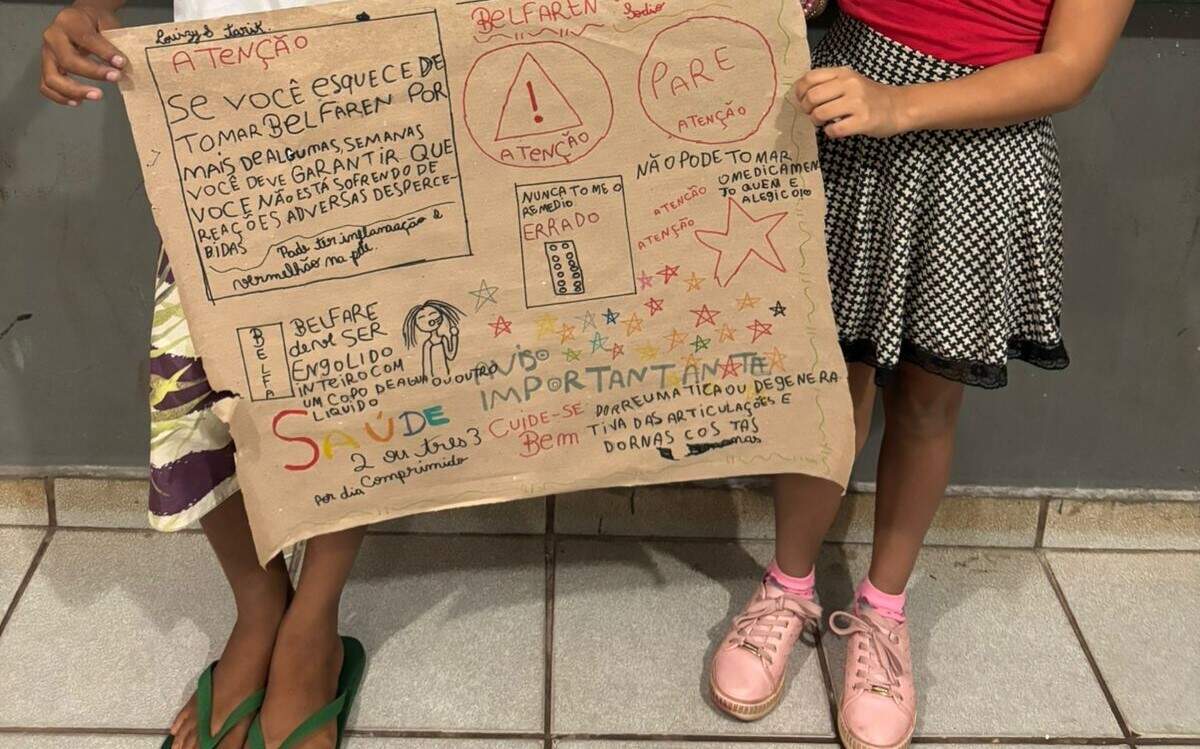 Tarik.
ATENÇÃO
SE VOCÊ ESQUECE DE
TOMAR BELFAREN POR
MAIS DE ALGUMAS, SEMANAS
VOCÊ DEVE GARANTIR QUE
VOCE NÃO ESTÁ SOFRENDO DE
REAÇÕES ADVERSAS DESPERCE-
BIDAS
Pode ter inflamação e
vermelhão na pele.
BELFAREN
Sodio
ATENÇÃO
PARE
ATENÇÃO
NÃO PODE TOMAR
O MEDICAMEN
TO QUEM E
ALEGICOJO
ATENÇÃO
ATENÇÃO
NUNCA TOME O
REMEDIO
ERRADO
BELFA
BELFARE
deve SER
ENGOLIDO
INTEIRO COM
UM COPO DE AGUA OU OUTRO
LIQUIDO
AVISO
IMPORTANTANTE
SAÚDE
2 ou tres 3
comprimido
por dia
CUIDE-SE
Bem
DORREUMATICA OU DEGENERA
TIVA DAS ARTICULAÇÕES E
DOR NAS COSTAS